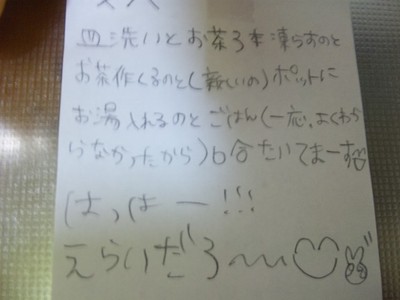 皿洗いとお茶3本凍らすのと
お茶作くるのと(新しいの)ポットに
お湯入れるのとごはん(一応、よくわか
らなかったから)6合たいてまーす
はっはー!!!
えらいだろ〜〜